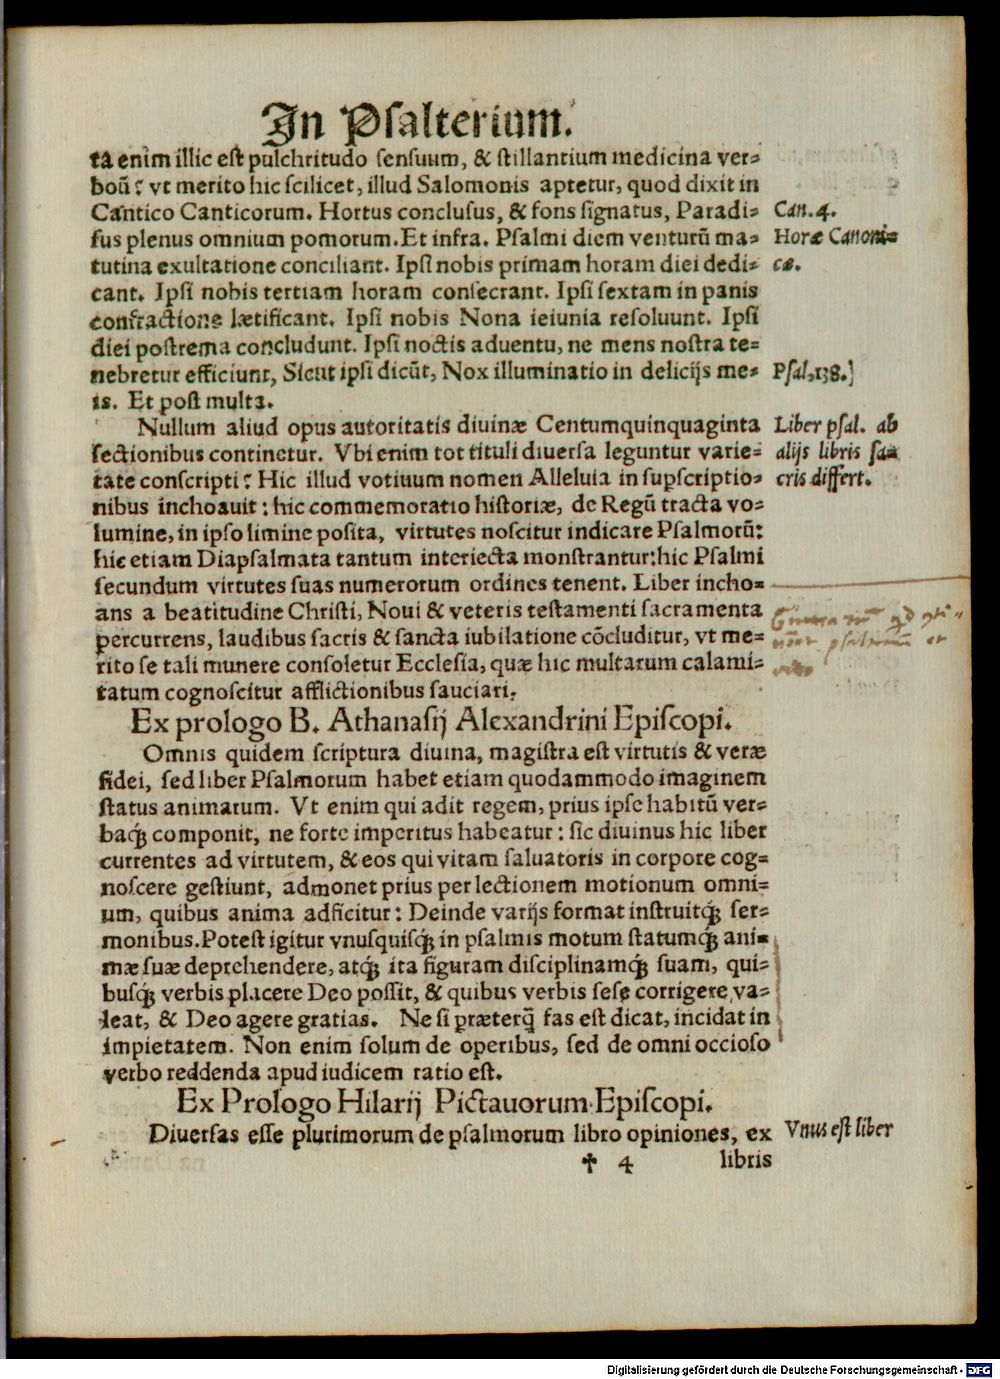 In Psalterium.
ta enim illic est pulchritudo sensuum, & stillantium medicina ver=
boū? vt merito hic scilicet, illud Salomonis aptetur, quod dixit in
Cantico Canticorum. Hortus conclusus, & fons signatus, Paradi=
Can. 4.
sus plenus omnium pomorum. Et infra. Psalmi diem venturū ma=
Horæ Canoni=
tutina exultatione conciliant. Ipsi nobis primam horam diei dedi=
cæ.
cant. Ipsi nobis tertiam horam consecrant. Ipsi sextam in panis
confractione lætificant. Ipsi nobis Nona ieiunia resoluunt. Ipsi
diei postrema concludunt. Ipsi noctis aduentu, ne mens nostra te=
nebretur efficiunt, Sicut ipsi dicūt, Nox illuminatio in delicijs me=
Psal, 138.]
is. Et post multa.
Nullum aliud opus autoritatis diuinæ Centumquinquaginta
Liber psal. ab
sectionibus continetur. Vbi enim tot tituli diuersa leguntur varie=
alijs libris sa=
tate conscripti? Hic illud votiuum nomen Alleluia in supscriptio=
cris differt.
nibus inchoauit: hic commemoratio historiæ, de Regū tracta vo=
lumine, in ipso limine posita, virtutes noscitur indicare Psalmorū:
hic etiam Diapsalmata tantum interiecta monstrantur: hic Psalmi
secundum virtutes suas numerorum ordines tenent. Liber incho=
ans a beatitudine Christi, Noui & veteris testamenti sacramenta
percurrens, laudibus sacris & sancta iubilatione cōcluditur, vt me=
rito se tali munere consoletur Ecclesia, quæ hic multarum calami=
tatum cognoscitur afflictionibus sauciari.
Ex prologo B. Athanasij Alexandrini Episcopi.
Omnis quidem scriptura diuina, magistra est virtutis & veræ
fidei, sed liber Psalmorum habet etiam quodammodo imaginem
status animarum. Vt enim qui adit regem, prius ipse habitū ver=
baq́ componit, ne forte imperitus habeatur: sic diuinus hic liber
currentes ad virtutem, & eos qui vitam saluatoris in corpore cog=
noscere gestiunt, admonet prius per lectionem motionum omni=
um, quibus anima adficitur: Deinde varijs format instruitq́ ser=
monibus. Potest igitur vnusquisq́ in psalmis motum statumq́ ani=
mæ suæ deprehendere, atq́ ita figuram disciplinamq́ suam, qui=
busq́ verbis placere Deo possit, & quibus verbis sese corrigere va=
leat, & Deo agere gratias. Ne si præterq̄ fas est dicat, incidat in
impietatem. Non enim solum de operibus, sed de omni occioso
verbo reddenda apud iudicem ratio est.
Ex Prologo Hilarij Pictauorum Episcopi.
Diuersas esse plurimorum de psalmorum libro opiniones, ex
Vnus est liber
† 4 libris
Digitalisierung gefördert durch die Deutsche Forschungsgemeinschaft - DFG